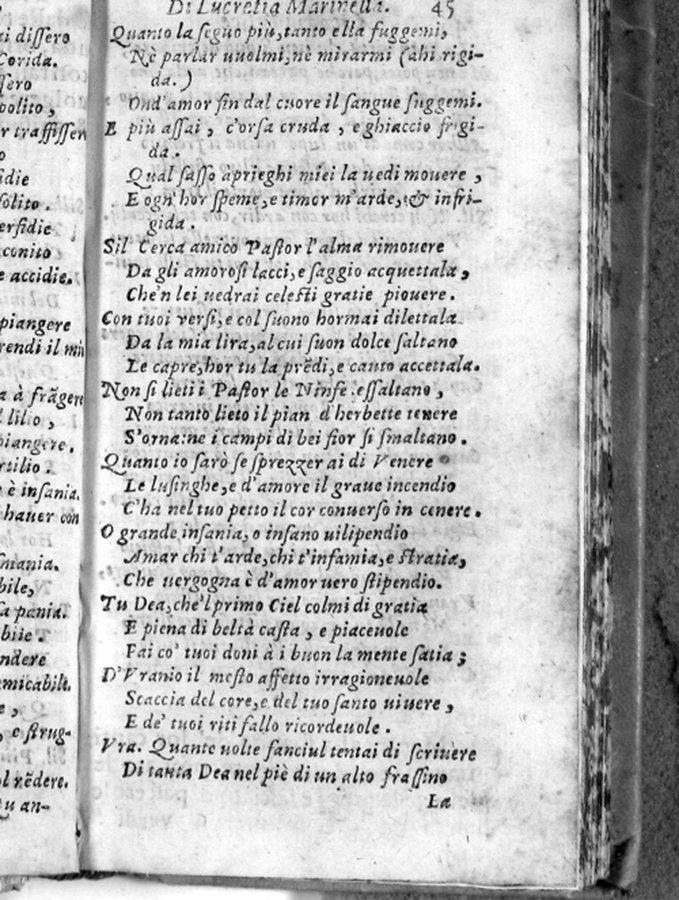 ti dissero
Corida.
ssero
polito,
r traffissero
o
idie
solito.
erfidie
conito
e accidie.
piangere
rendi il mio
a à frãgere
lilio,
piangere.
rtilio.
è insania.
hauer con
smania.
bile,
sa pania.
biie.
ndere
micabile.
e,
, e strug-
l rẽdere.
u an-
Di Lucretia Marinella. 45
Quanto la seguo più, tanto ella fuggemi,
Nè parlar vuolmi, nè mirarmi (ahi rigi-
da.)
Ond'amor fin dal cuore il sangue suggemi.
E più assai, c'orsa cruda, e ghiaccio frigi-
da.
Qual sasso a prieghi miei la uedi mouere,
E ogn'hor speme, e timor m'arde, & infri-
gida.
Sil Cerca amico Pastor l'alma rimouere
Da gli amorosi lacci, e saggio acquettala,
Che'n lei uedrai celesti gratie piouere.
Con tuoi versi, e col suono hormai dilettala
Da la mia lira, al cui suon dolce saltano
Le capre, hor tu la prẽdi, e canto accettala.
Non si lieti i Pastor le Ninfe essaltano,
Non tanto lieto il pian d'herbette tenere
S'orna: ne i campi di bei fior si smaltano.
Quanto io sarò se sprezzerai di Venere
Le lusinghe, e d'amore il graue incendio
C'ha nel tuo petto il cor conuerso in cenere.
O grande insania, o insano uilipendio
Amar chi t'arde, chi t'infamia, e stratia,
Che uergogna è d'amor uero stipendio.
Tu Dea, che'l primo Ciel colmi di gratia
E piena di beltà casta, e piaceuole
Fai co' tuoi doni à i buon la mente satia;
D'Vranio il mesto affetto irragioneuole
Scaccia del core, e del tuo santo uiuere,
E de' tuoi riti fallo ricordeuole.
Vra. Quante uolte fanciul tentai di scriuere
Di tanta Dea nel piè di un alto frassino
La